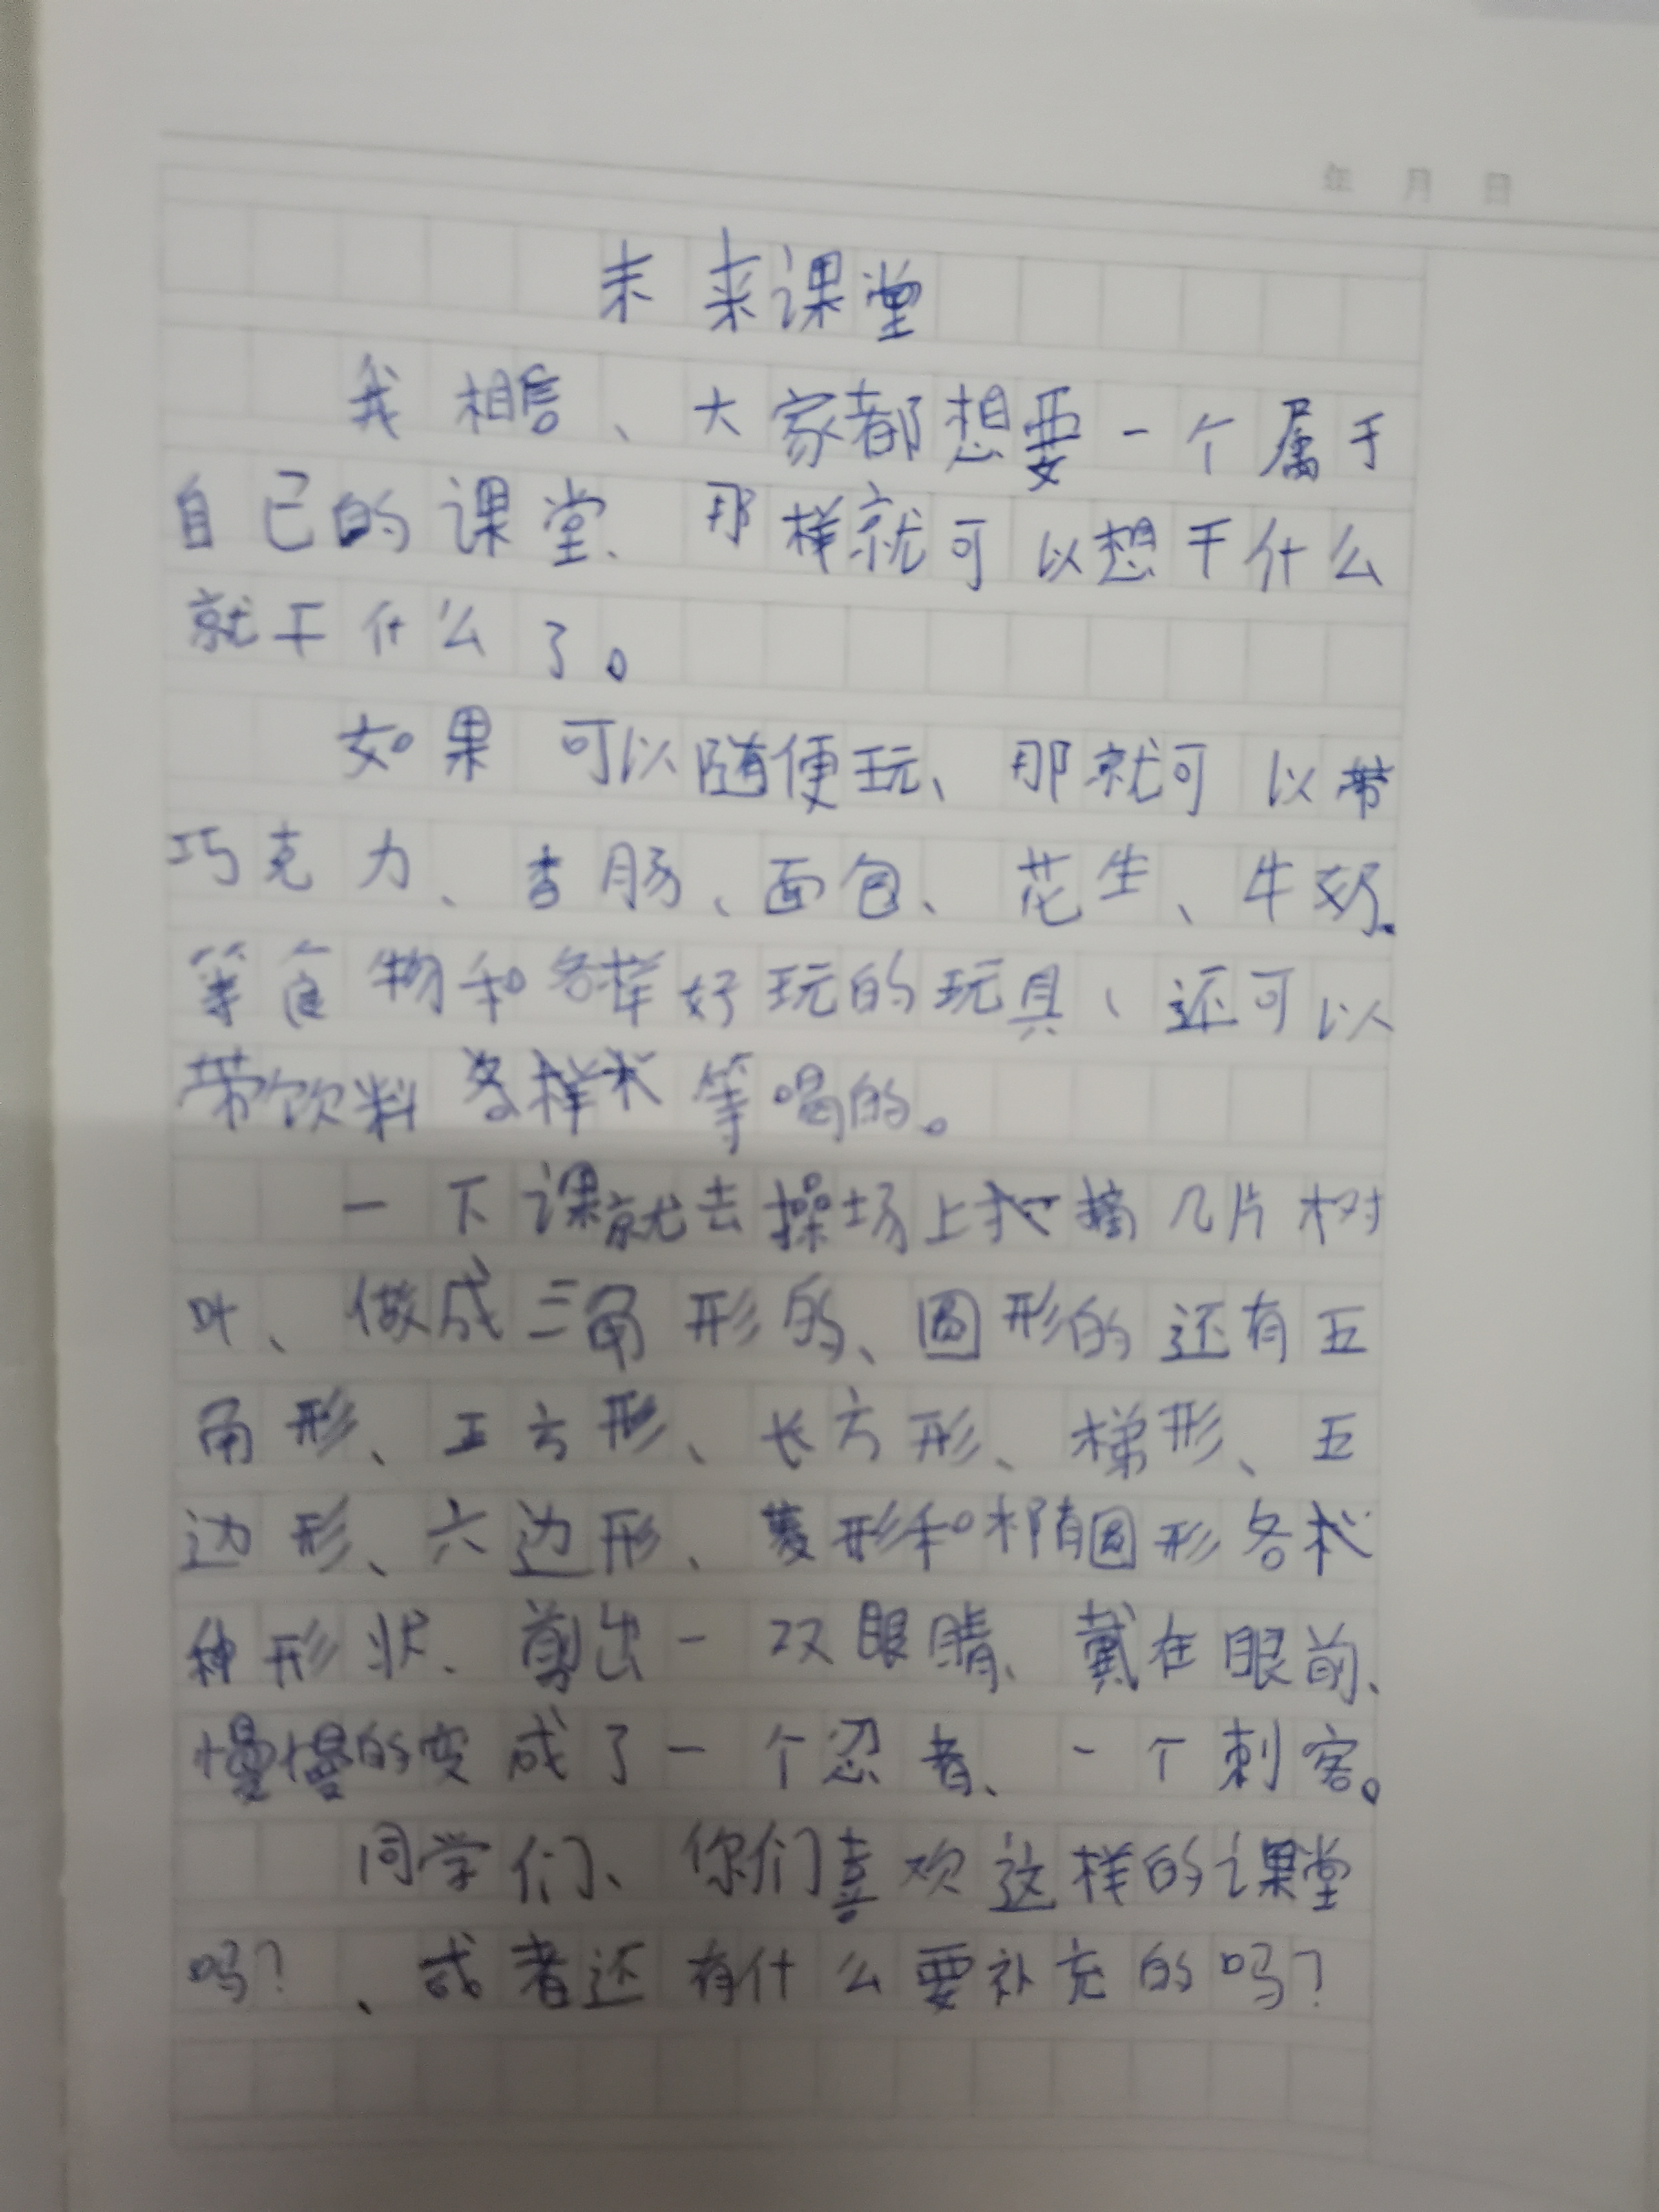 年 月 日
未来课堂
我相信、大家都想要一个属于
自己的课堂、那样就可以想干什么
就干什么了。
如果可以随便玩、那就可以带
巧克力、香肠、面包、花生、牛奶、
等食物和各样好玩的玩具、还可以
带饮料等喝的。
一下课就去操场上摘几片树
叶、做成三角形的、圆形的还有五
角形、正方形、长方形、梯形、五
边形、六边形、菱形和椭圆形各
种形状、剪出一双眼睛、戴在眼前、
慢慢的变成了一个忍者、一个刺客。
同学们、你们喜欢这样的课堂
吗？、或者还有什么要补充的吗？